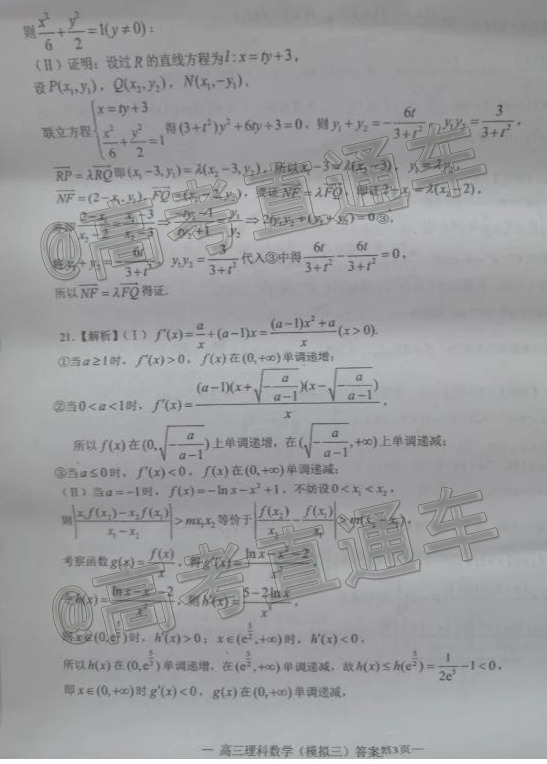 则x²/6+y²/2=1(y≠0);
(Ⅱ) 证明：设过R的直线方程为l:x=ty+3,
设P(x₁,y₁), Q(x₂,y₂), N(x₁,-y₁),
联立方程{x=ty+3, x²/6+y²/2=1 得(3+t²)y²+6ty+3=0, 则y₁+y₂=-6t/(3+t²), y₁y₂=3/(3+t²),
RP=λRQ即(x₁-3,y₁)=λ(x₂-3,y₂), 所以x₁-3=λ(x₂-3), y₁=λy₂,
NF=(2-x₁,y₁), FQ=(x₂-2,y₂), 要证NF=λFQ, 即证2-x₁=λ(x₂-2),
(2-x₁)/(x₂-2)=(x₁-3)/(x₂-3)⇒(-ty₁-1)/(ty₂+1)=y₁/y₂⇒2ty₁y₂+(y₁+y₂)=0③,
将y₁+y₂=-6t/(3+t²), y₁y₂=3/(3+t²)代入③中得6t/(3+t²)-6t/(3+t²)=0,
所以NF=λFQ得证.
21.【解析】(Ⅰ) f′(x)=a/x+(a-1)x=((a-1)x²+a)/x(x>0).
①当a≥1时, f′(x)>0, f(x)在(0,+∞)单调递增;
②当0<a<1时, f′(x)=(a-1)(x+√(-a/(a-1)))(x-√(-a/(a-1)))/x,
所以f(x)在(0,√(-a/(a-1)))上单调递增, 在(√(-a/(a-1)),+∞)上单调递减;
③当a≤0时, f′(x)<0, f(x)在(0,+∞)单调递减;
(Ⅱ) 当a=-1时, f(x)=-ln x-x²+1, 不妨设0<x₁<x₂,
则|(x₁f(x₂)-x₂f(x₁))/(x₁-x₂)|>mx₁x₂等价于|f(x₂)/x₂-f(x₁)/x₁|>m(x₂-x₁),
考察函数g(x)=f(x)/x, 得g′(x)=(ln x-x²-2)/x²,
令h(x)=(ln x-x²-2)/x², 则h′(x)=(5-2ln x)/x³,
则x∈(0,e^(5/2))时, h′(x)>0; x∈(e^(5/2),+∞)时, h′(x)<0,
所以h(x)在(0,e^(5/2))单调递增, 在(e^(5/2),+∞)单调递减, 故h(x)≤h(e^(5/2))=1/(2e⁵)-1<0,
即x∈(0,+∞)时g′(x)<0, g(x)在(0,+∞)单调递减,
— 高三理科数学（模拟三）答案第3页—
@高考直通车
@高考直通车